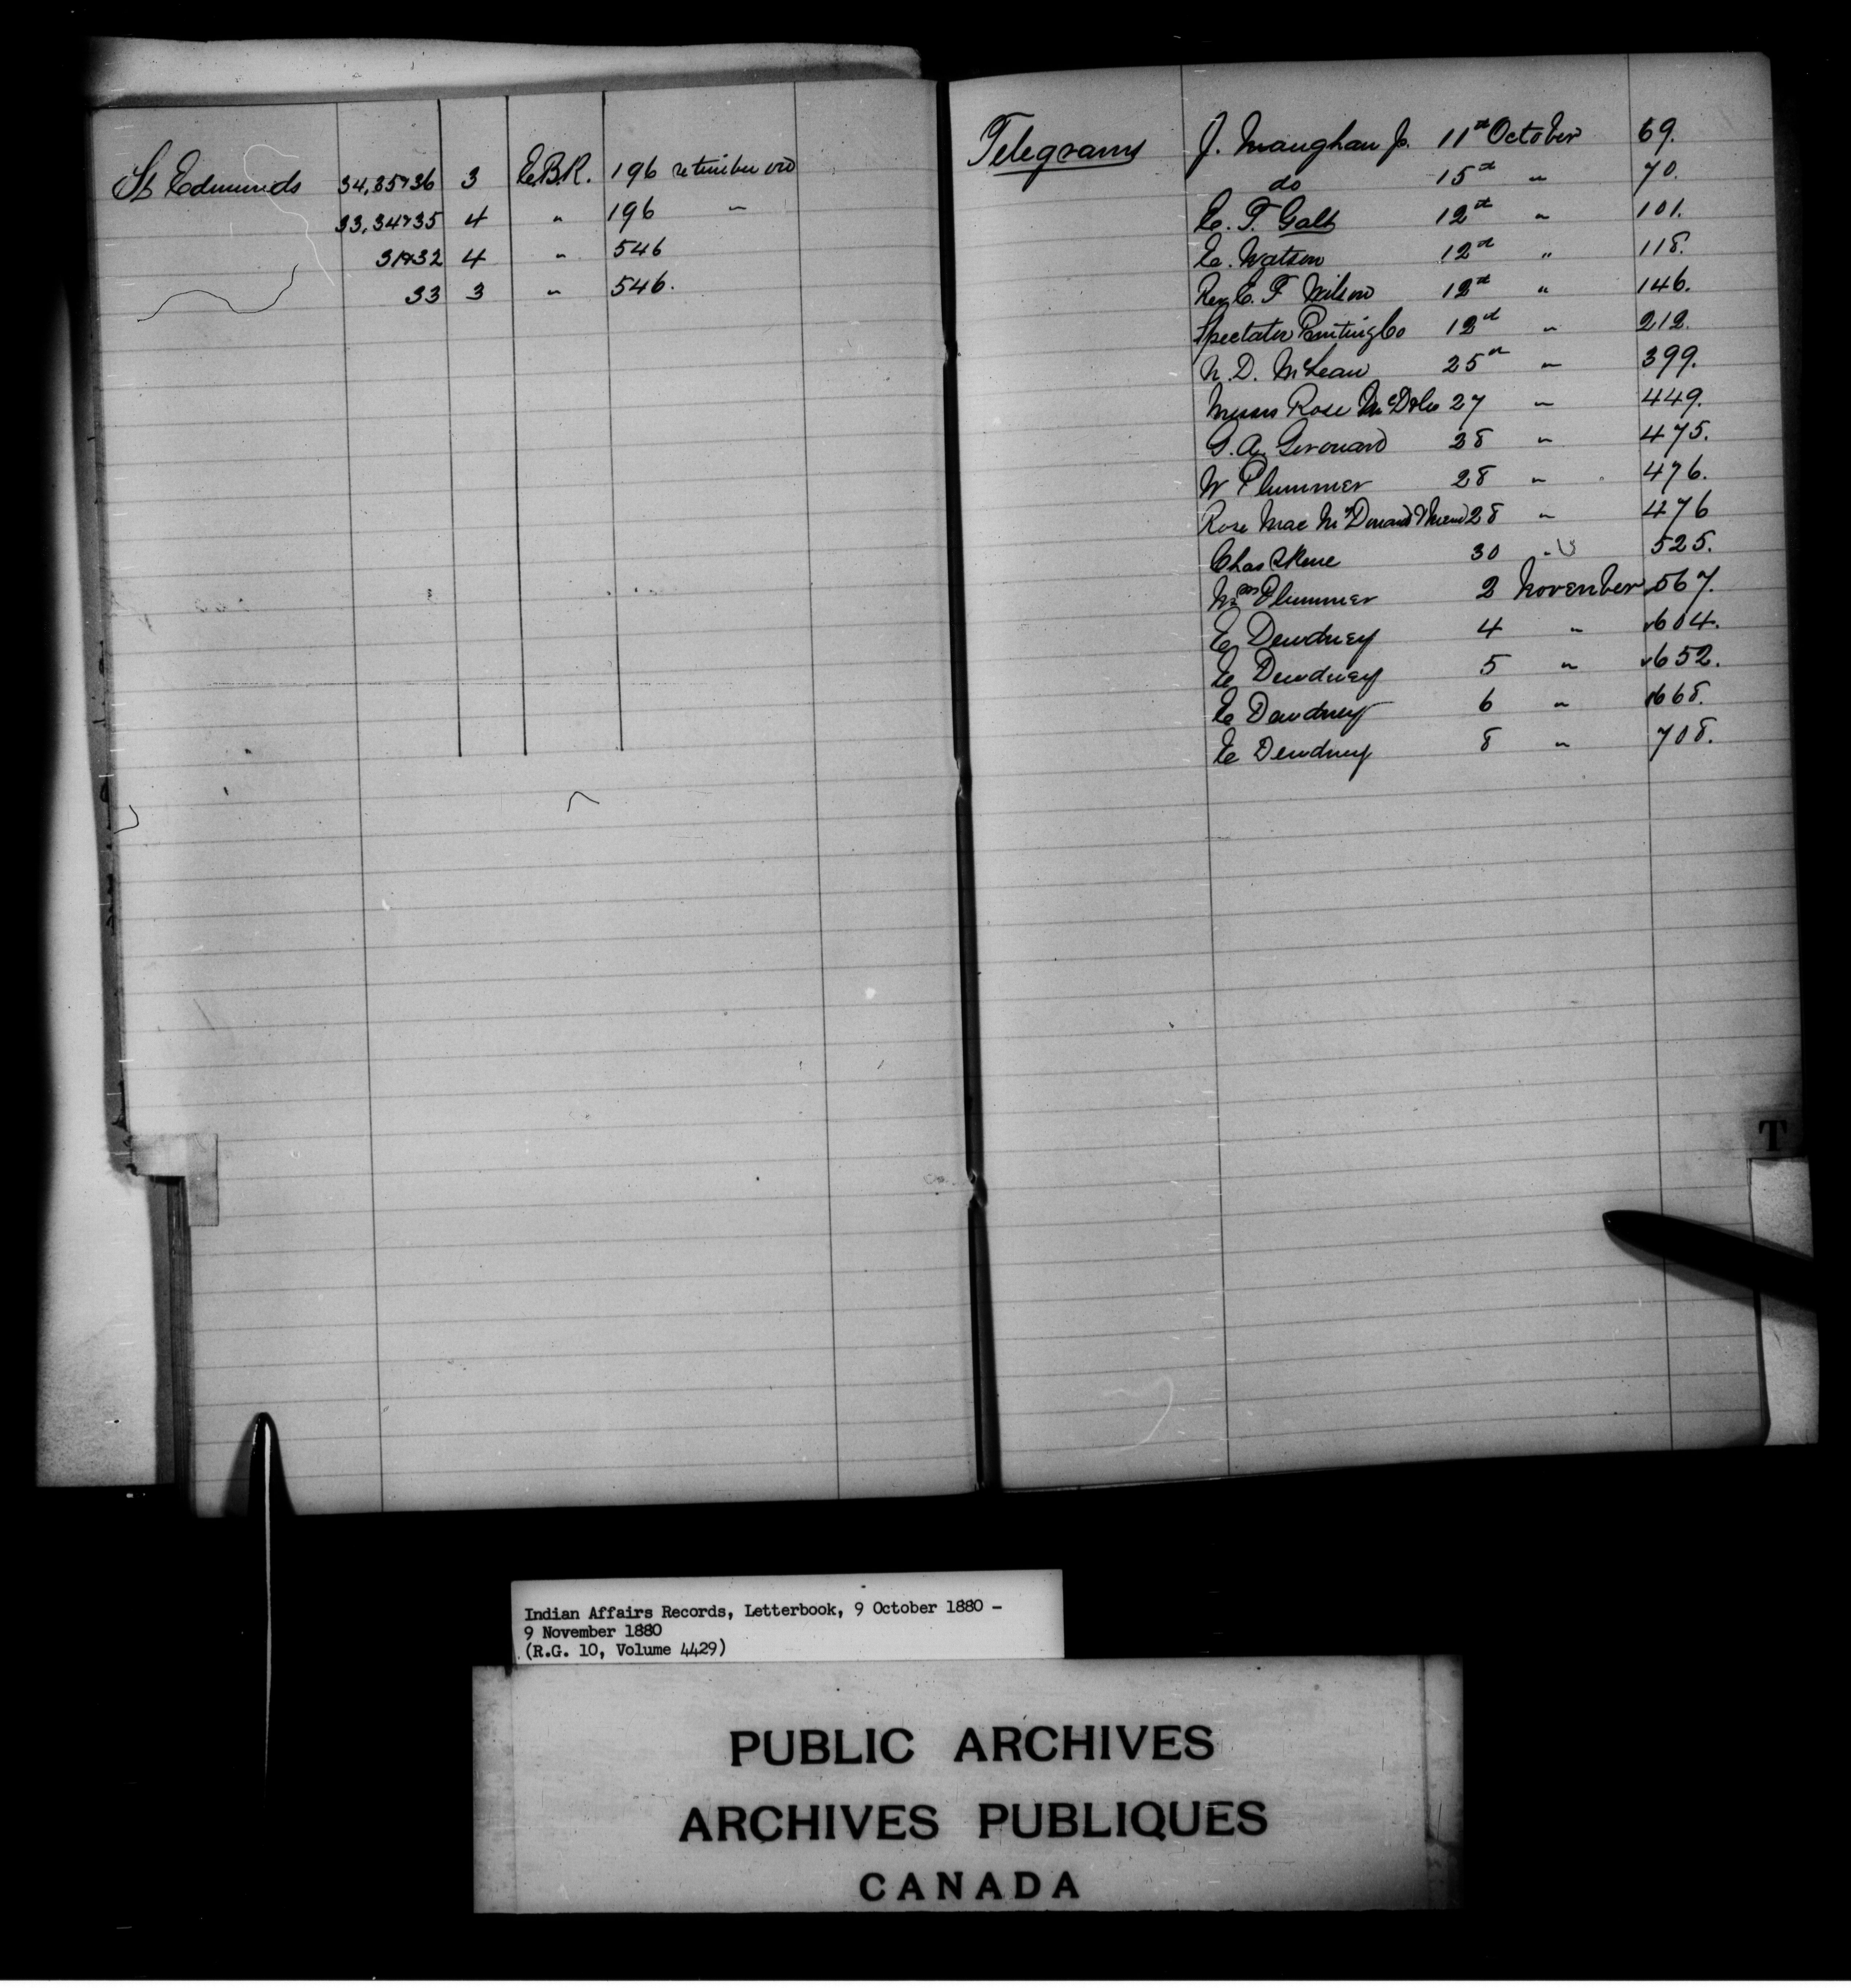 St Edmunds 34,35+36 3 E.B.R. 196 re timber on
33,34+35 4 " 196 "
31+32 4 " 546
33 3 " 546.
Telegrams J. Maughan Jr. 11th October 69.
do 15th " 70.
E. T. Galt 12th " 101.
E. Watson 12th " 118.
Rev E. F Wilson 12th " 146.
Spectator Printing Co 12th " 212.
N. D. McLean 25th " 399.
Messrs Rose McD & Co 27 " 449.
G. A. Girouard 28 " 475.
W Plummer 28 " 476.
Rose Mac McDonald 28 " 476
Chas Skene 30 " 525.
Wm Plummer 2 November 567.
E Dewdney 4 " 604.
E Dewdney 5 " 652.
E Dewdney 6 " 668.
E Dewdney 8 " 708.
T
Indian Affairs Records, Letterbook, 9 October 1880 -
9 November 1880
(R.G. 10, Volume 4429)
PUBLIC ARCHIVES
ARCHIVES PUBLIQUES
CANADA